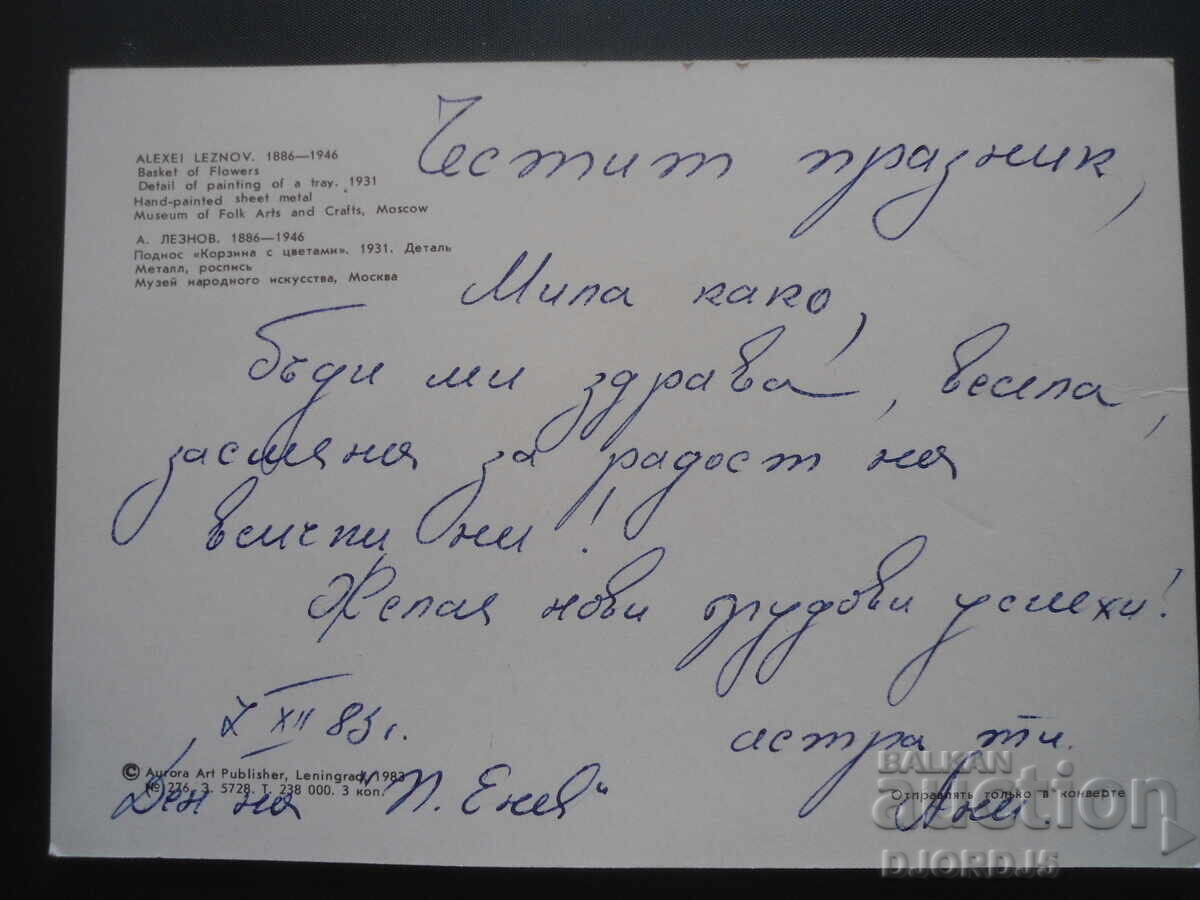 ALEXEI LEZNOV. 1886—1946
Basket of Flowers
Detail of painting of a tray. 1931
Hand-painted sheet metal
Museum of Folk Arts and Crafts, Moscow
А. ЛЕЗНОВ. 1886—1946
Поднос «Корзина с цветами». 1931. Деталь
Металл, роспись
Музей народного искусства, Москва
Честит празник,
Мила како,
бъди ми здрава, весела,
засмяна за радост на
всички ни!
Желая нови трудови успехи!
7 XII 83 г.
сестра ти
Ани.
Ден на "П. Енев"
© Aurora Art Publisher, Leningrad, 1983
№ 276. З. 5728. Т. 238 000. 3 коп.
Отправлять только в конверте
BALKAN
auction
DJORDJ5